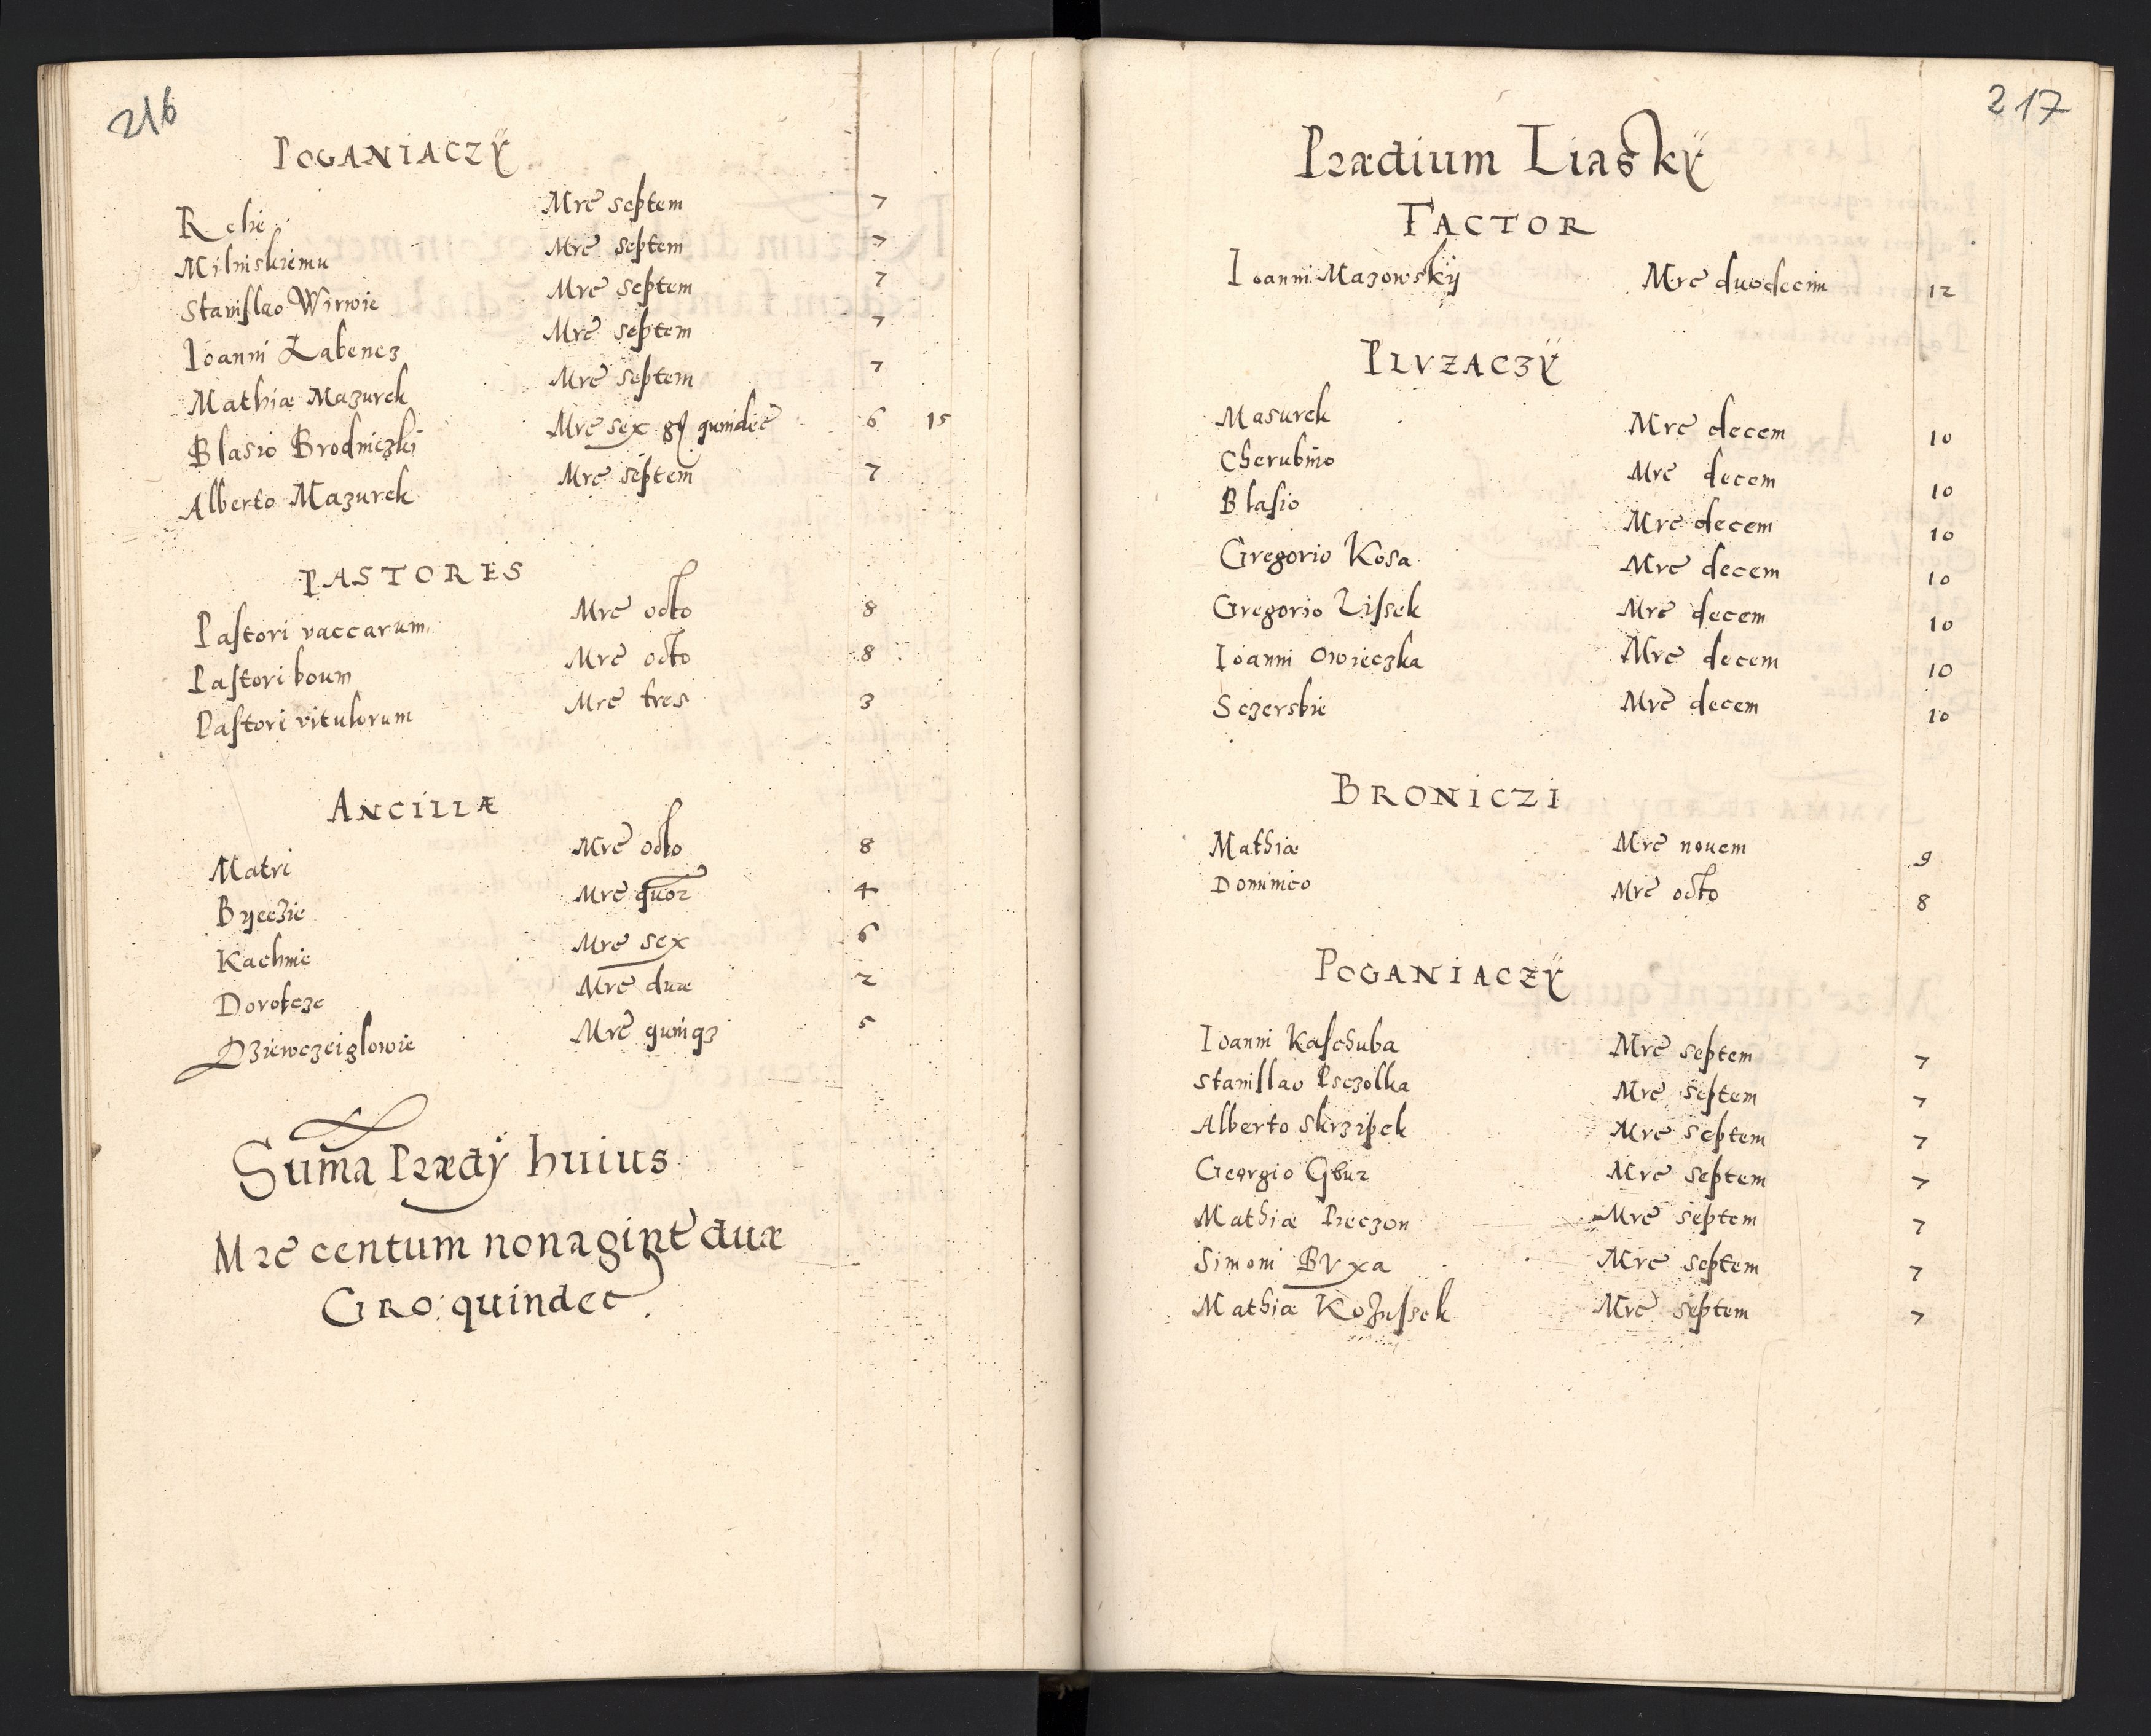 216
POGANIACZÿ
Rehie Mre septem 7
Milniskiemu Mre septem 7
Stanislao Wirwie Mre septem 7
Ioanni Zabencz Mre septem 7
Mathiæ Mazurek Mre septem 7
Blasio Brodniczki Mre sex gr quindec 6 15
Alberto Mazurek Mre septem 7
PASTORES
Pastori vaccarum Mre octo 8
Pastori boum Mre octo 8
Pastori vitulorum Mre tres 3
ANCILLÆ
Matri Mre octo 8
Byeczie Mre quor 4
Kachnie Mre sex 6
Dorotcze Mre duæ 2
Dziewczeiglowie Mre quinqz 5
Suma Prædÿ huius
Mre centum nonagint duæ
GRO: quindec.
217
Prædium Liaskÿ
FACTOR
Ioanni Mazowskÿ Mre duodecim 12
PLVZACZÿ
Masurek Mre decem 10
Cherubino Mre decem 10
Blasio Mre decem 10
Gregorio Kosa Mre decem 10
Gregorio Lissek Mre decem 10
Ioanni Owieczka Mre decem 10
Sczerbie Mre decem 10
BRONICZI
Mathiæ Mre nouem 9
Dominico Mre octo 8
POGANIACZÿ
Ioanni Kaschuba Mre septem 7
Stanislao Psczolka Mre septem 7
Alberto Skrzipek Mre septem 7
Georgio Gbur Mre septem 7
Mathiæ Pieczon Mre septem 7
Simoni BVxa Mre septem 7
Mathiæ Kozussek Mre septem 7